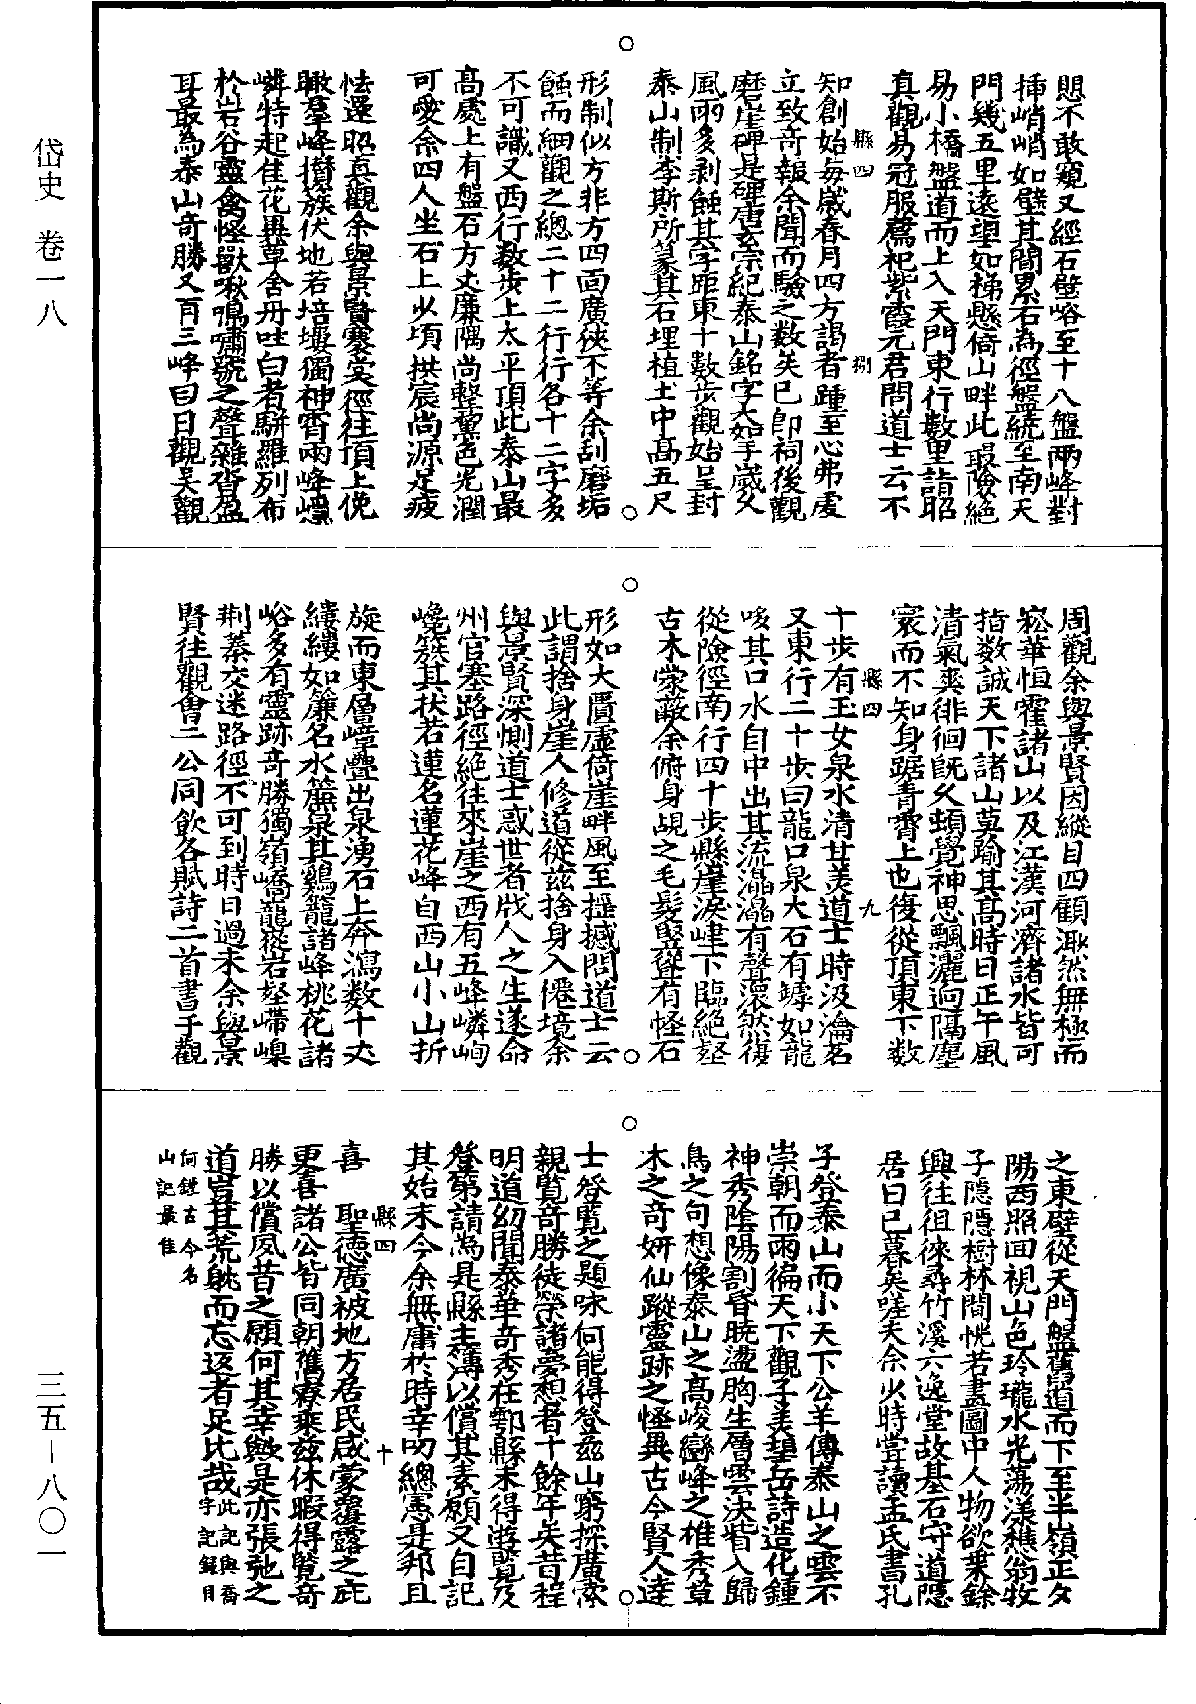 岱史 卷一八
三五—八〇一
愳不敢窺又經石壁峪至十八盤兩峰對
揷峭峭如壁其間累石為徑盤繞至南天
門幾五里遠望如梯懸倚山畔此最險絕
易小橋盤道而上入天門東行數里詣昭
真觀易冠服薦祀紫霞元君問道士云不
知創始每歲春月四方謁者踵至心弗虔
縣四 捌
立致奇報余聞而驗之数矣已即祠後觀
磨崖碑是碑唐玄宗紀泰山銘字大如手歲久
風雨多剥蝕其字距東十數步觀始皇封
泰山制李斯所篆其石埋植土中高五尺
形制似方非方四面廣俠不等余刮磨垢
蝕而細觀之總二十二行行各十二字多
不可識又西行数步上太平頂此泰山最
高處上有盤石方丈廉隅尚整黛色光潤
可愛余四人坐石上少頃拱宸尚源足疲
怯還昭真觀余與景賢褰裳徑往頂上俛
瞰羣峰攅簇伏地若培塿獨神霄兩峰嶾
嶙特起佳花異草舍丹吐白者駢羅列布
於岩谷靈禽怪獸啾鳴嘯號之聲雜沓盈
耳最為泰山奇勝又有三峰曰日觀吴觀
周觀余與景賢因縱目四顧淵然無極而
崧華恒霍諸山以及江漢河濟諸水皆可
指数誠天下諸山莫踰其高時日正午風
清氣爽徘徊旣久頓覺神思飄灑迥隔塵
寰而不知身踞青霄上也復從頂東下数
十步有玉女泉水清甘美道士時汲瀹茗
縣四 九
又東行二十步曰龍口泉大石有罅如龍
咳其口水自中出其流瀛瀛有聲滾然復
從險徑南行四十步懸崖淚崨下臨絕壑
古木蒙蔽余俯身覘之毛髮豎聳有怪石
形如大匱虛倚崖畔風至摇撼問道士云
此謂捨身崖人修道從兹捨身入僊境余
與景賢深惻道士惑世者戕人之生遂命
州官塞路徑絕往來崖之西有五峰嶙峋
巉簇其狀若蓮名蓮花峰自西山小山折
旋而東層嶂疊出泉湧石上奔瀉数十丈
縷縷如簾名水簾泉其鷄籠諸峰桃花諸
峪多有靈跡奇勝獨嶺嶠巃嵷岩壑嵽嵲
荆蓁交迷路徑不可到時日過未余與景
賢往觀會二公同飲各賦詩二首書于觀
之東壁從天門盤舊道而下至半嶺正夕
陽西照回視山色玲瓏水光蕩漾樵翁牧
子隱隱樹林間恍若畫圖中人物欲乘餘
興往徂徠尋竹溪六逸堂故基石守道隱
居日已暮矣嗟夫余少時嘗讀孟氏書孔
子登泰山而小天下公羊傳泰山之雲不
崇朝而雨徧天下觀子美望岳詩造化鍾
神秀陰陽割昏曉盪胸生層雲決眥入歸
鳥之句想像泰山之高峻巒峰之雄秀草
木之奇妍仙蹤靈跡之怪異古今賢人達
士登覧之題咏何能得登兹山窮探廣索
親覧奇勝徒縈諸夢想者十餘年矣昔程
明道幼聞泰華奇秀在鄠縣未得遊覧及
登第請為是縣主薄以償其素願又自記
其始末今余無庸於時幸叨總憲是邦且
喜 聖德廣被地方居民咸蒙覆露之庇
縣四 十
更喜諸公皆同朝舊寮乘兹休暇得覧奇
勝以償夙昔之願何其幸歟是亦張弛之
道豈其荒躭而忘返者足比哉此記與喬宇記錄自
何鏜古今名山記最佳